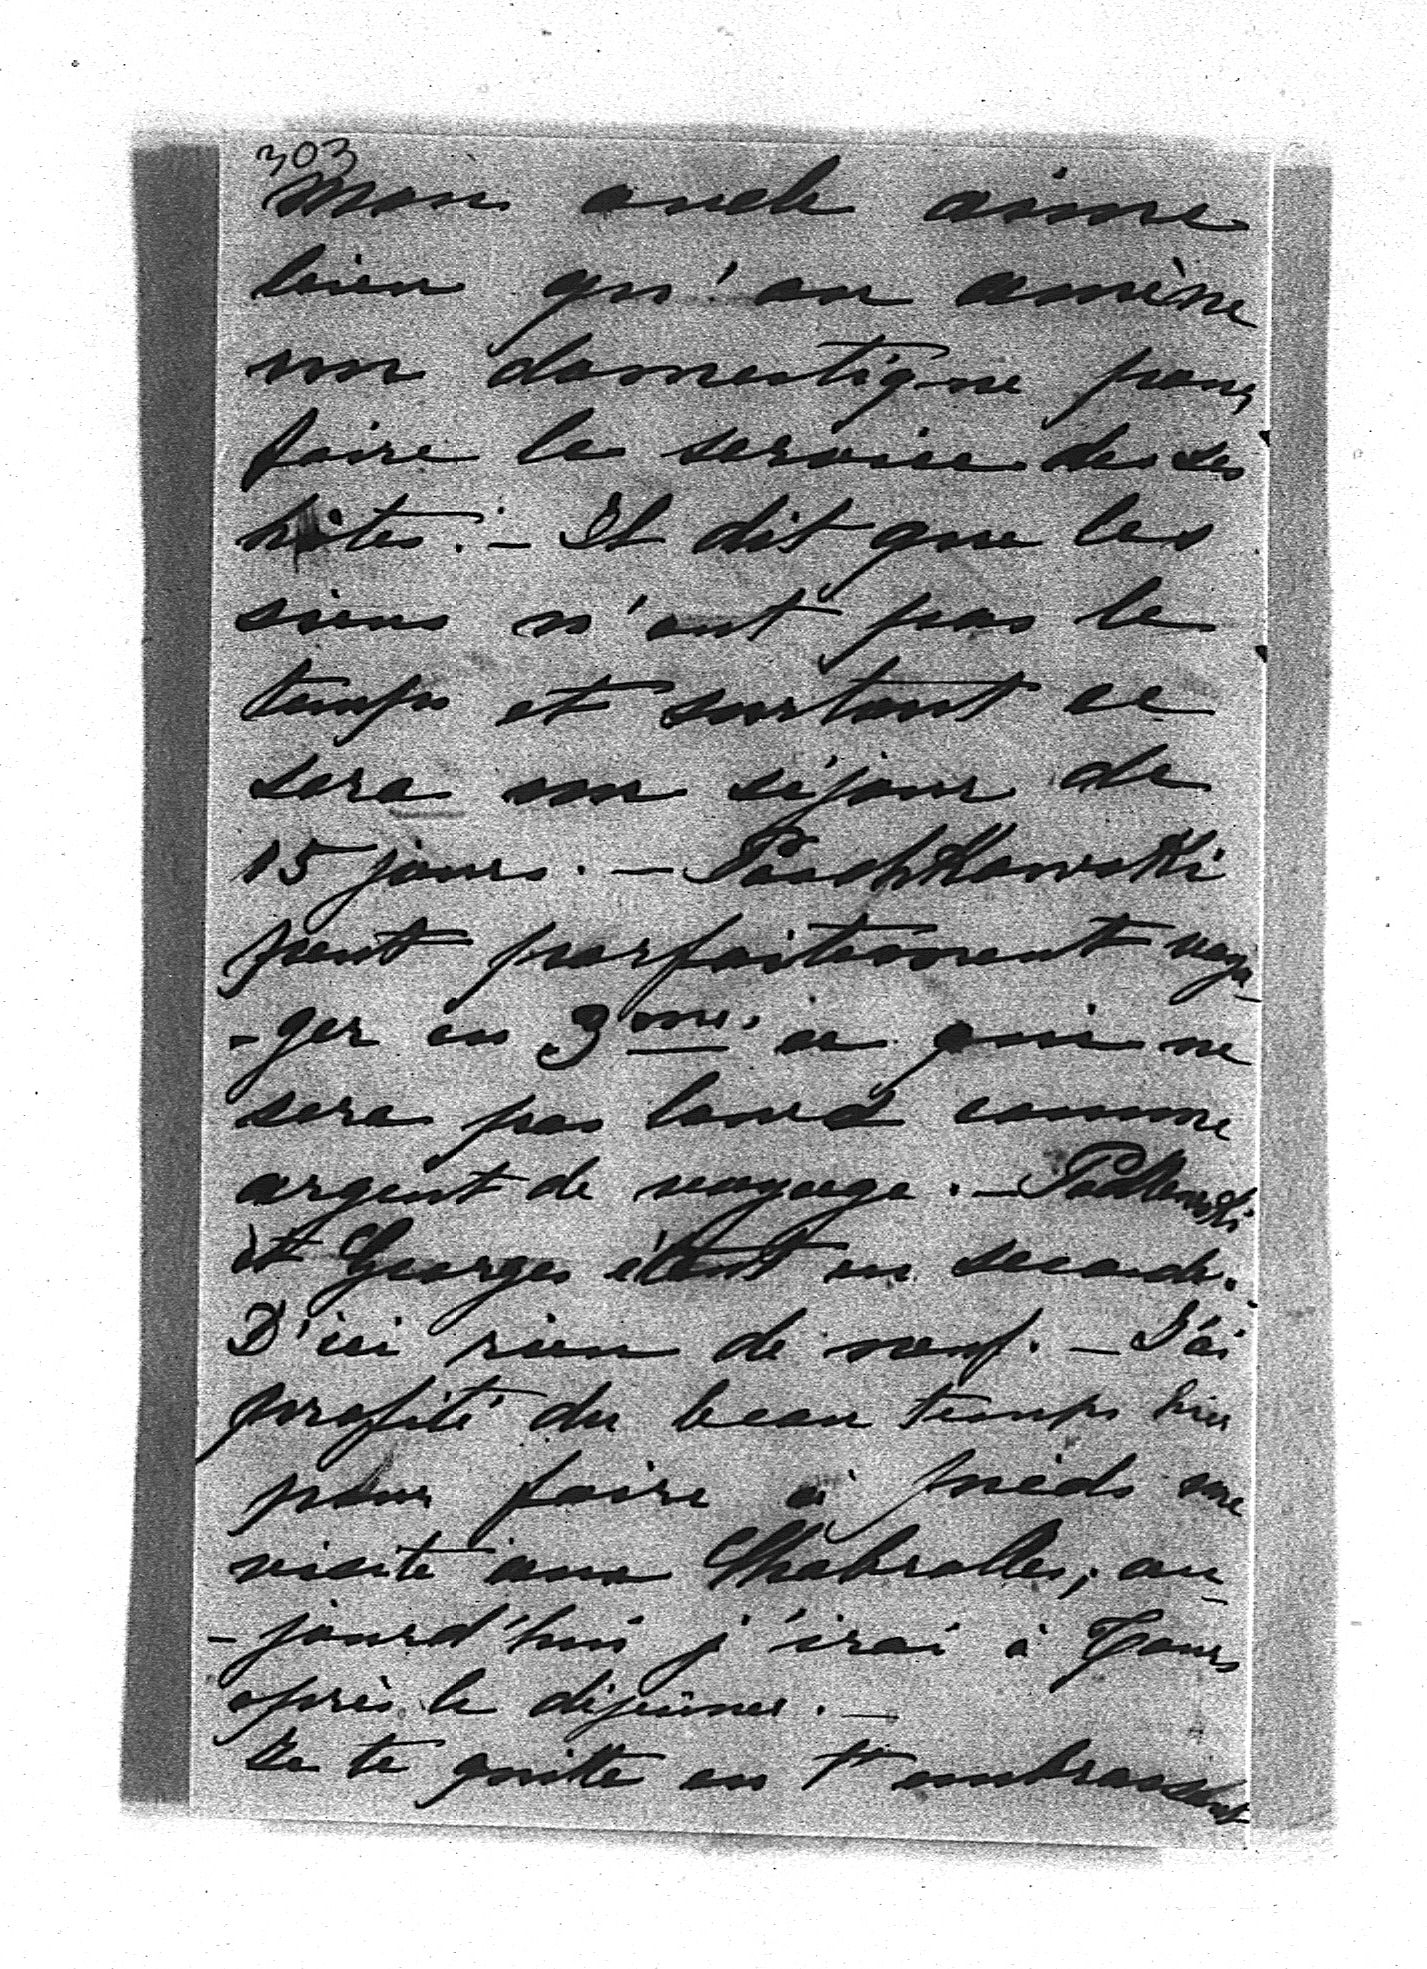 303
Mon oncle aime
bien qu'on amène
un domestique pour
faire le service de ses
hôtes. – Il dit que les
siens n'ont pas le
temps et surtout ce
sera un séjour de
15 jours. – Paschkowski
peut parfaitement voya-
-ger en 3me. ce qui ne
sera pas lourd comme
argent de voyage. – Podlewski
et Georges étant en seconde.
D'ici rien de neuf. – J'ai
profité du beau temps hier
pour faire à pieds une
visite aux Chabrolles, au-
-jourd'hui j'irai à Tours
après le déjeûner. –
Je te quitte en t'embrassant